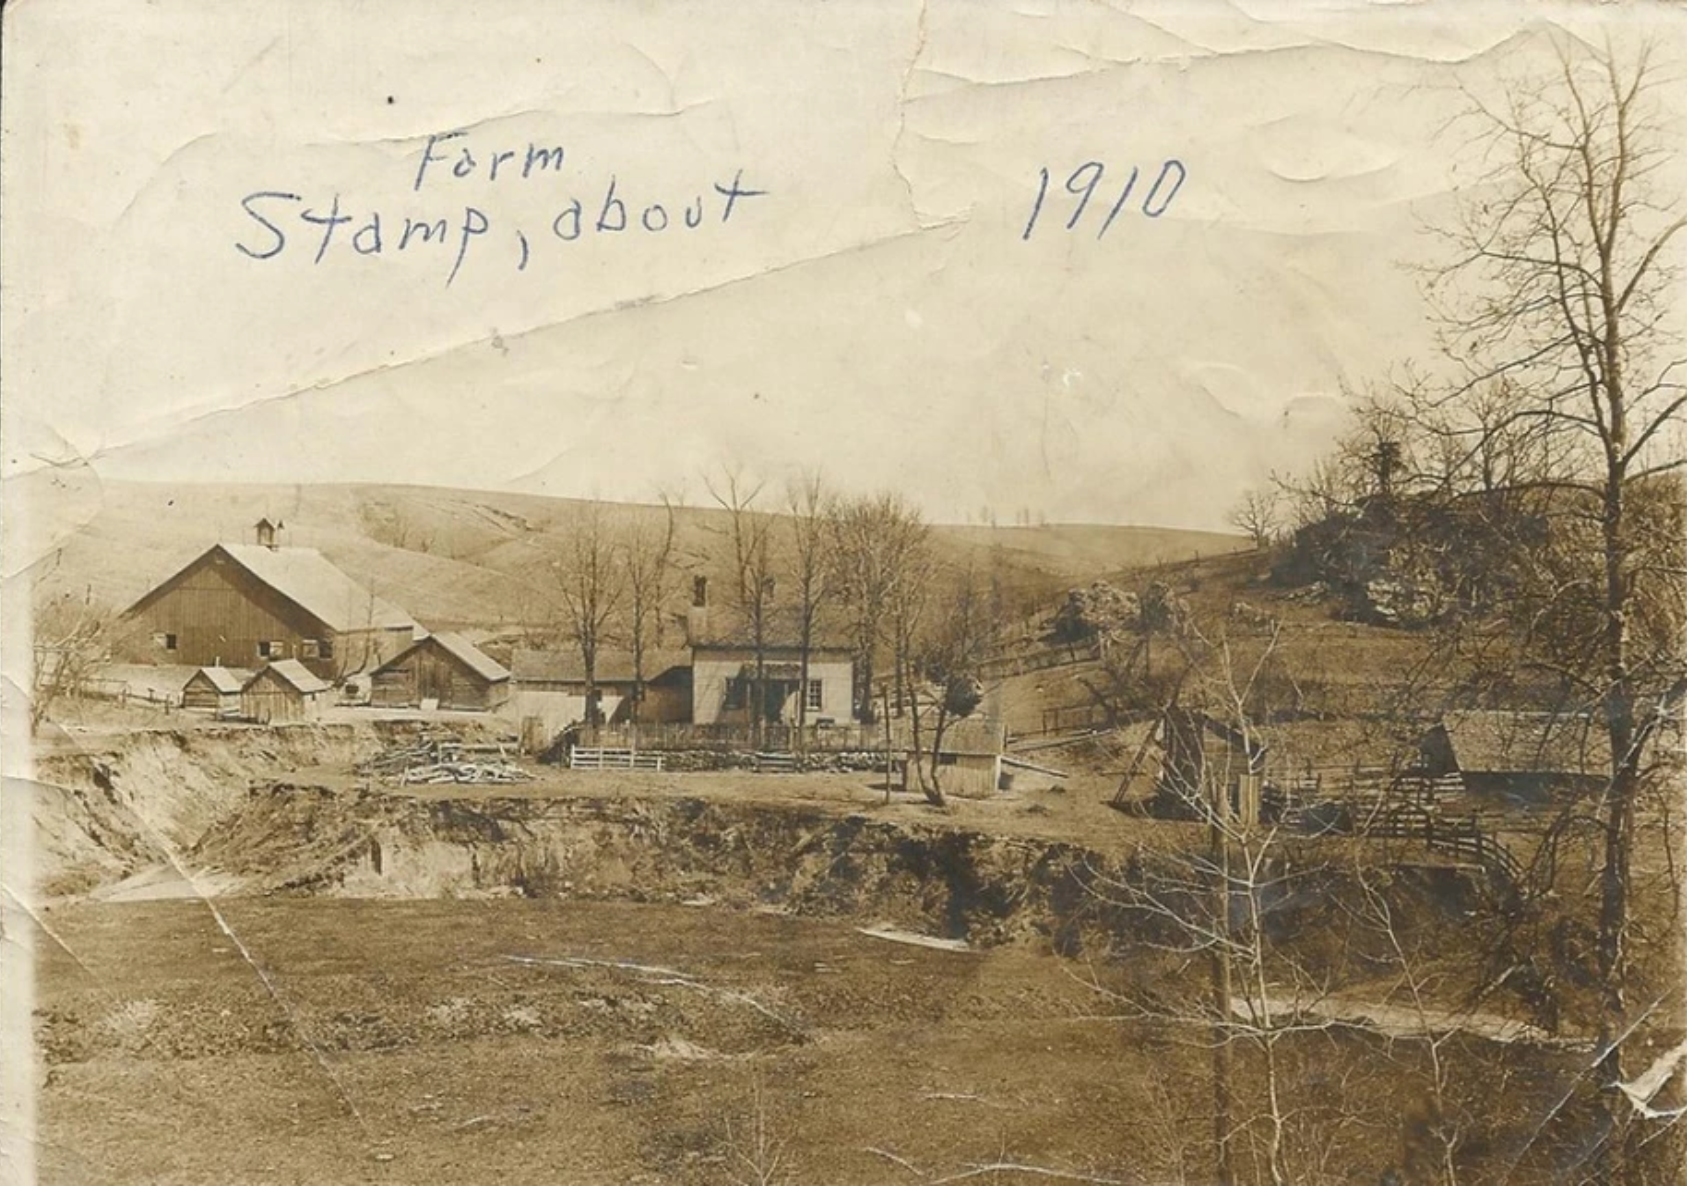 Farm
Stamp, about 1910